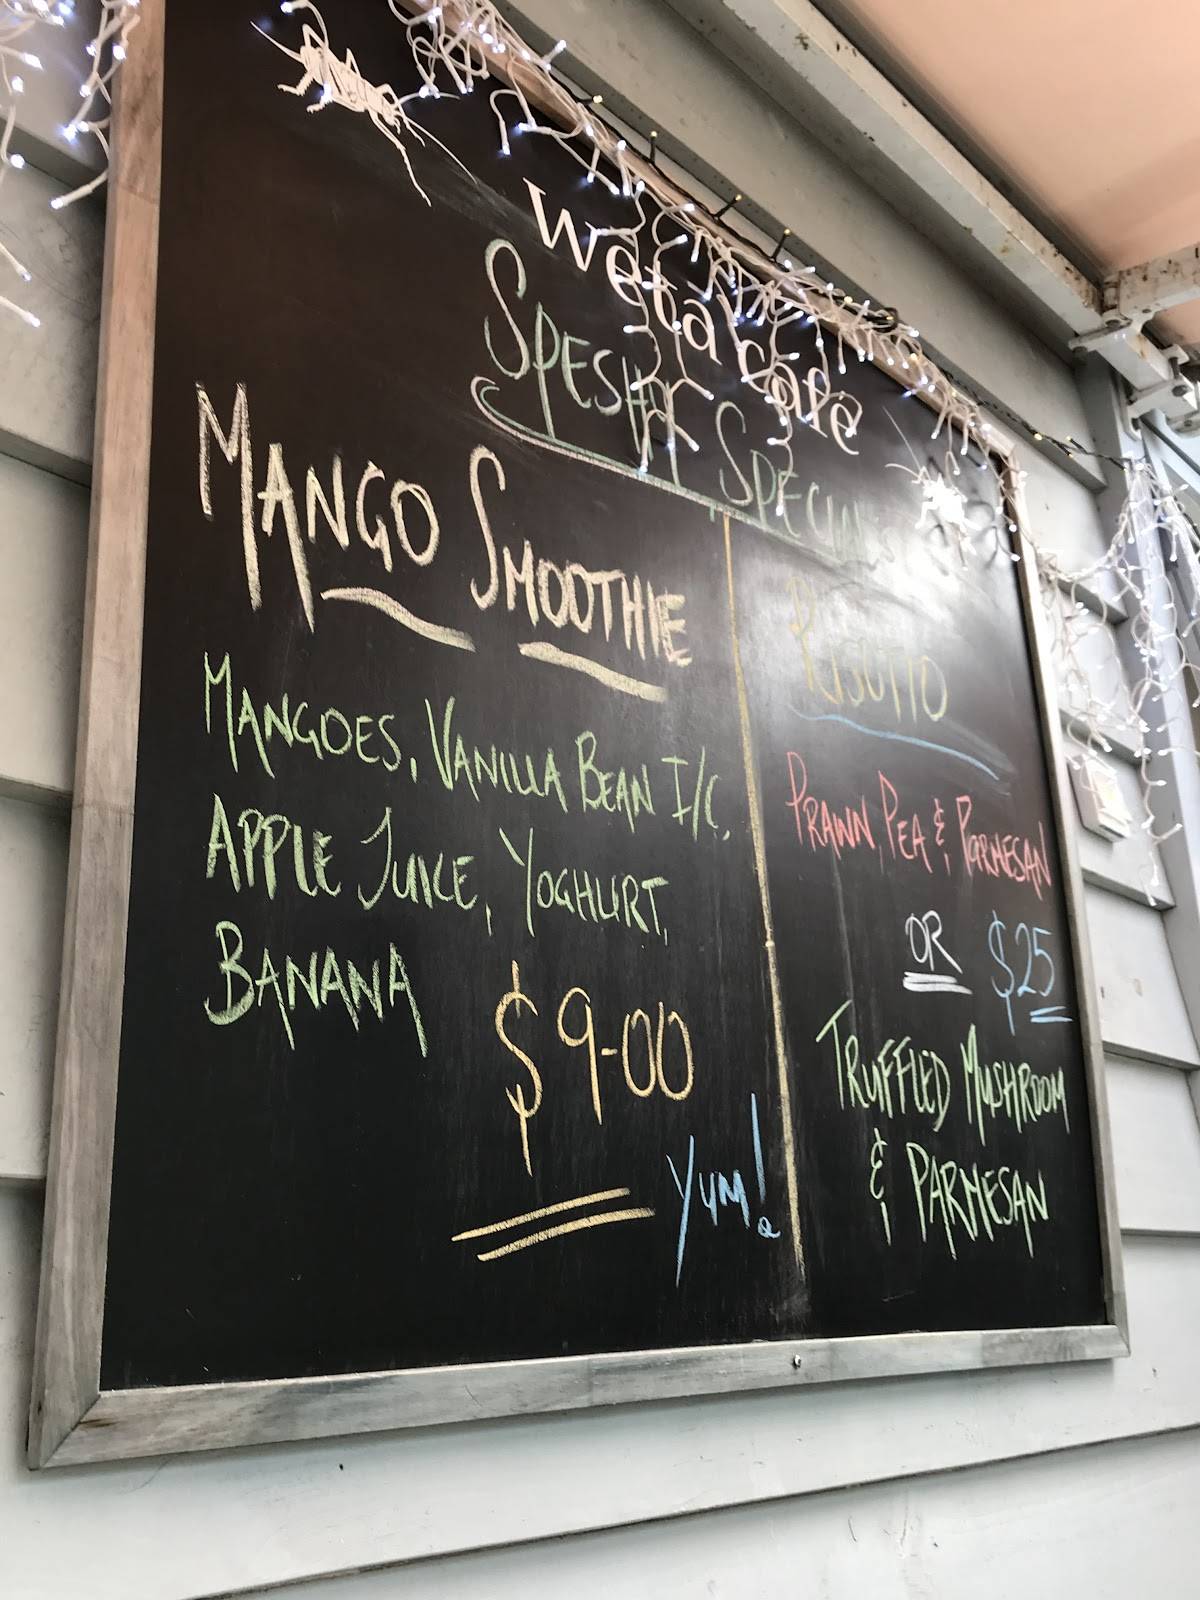 weta cafe
Speshil Specials
Mango Smoothie
Mangoes, Vanilla Bean I/C,
Apple Juice, Yoghurt,
Banana
$9-00
Yum!
Risotto
Prawn, Pea & Parmesan
OR $25
Truffled Mushroom
& Parmesan